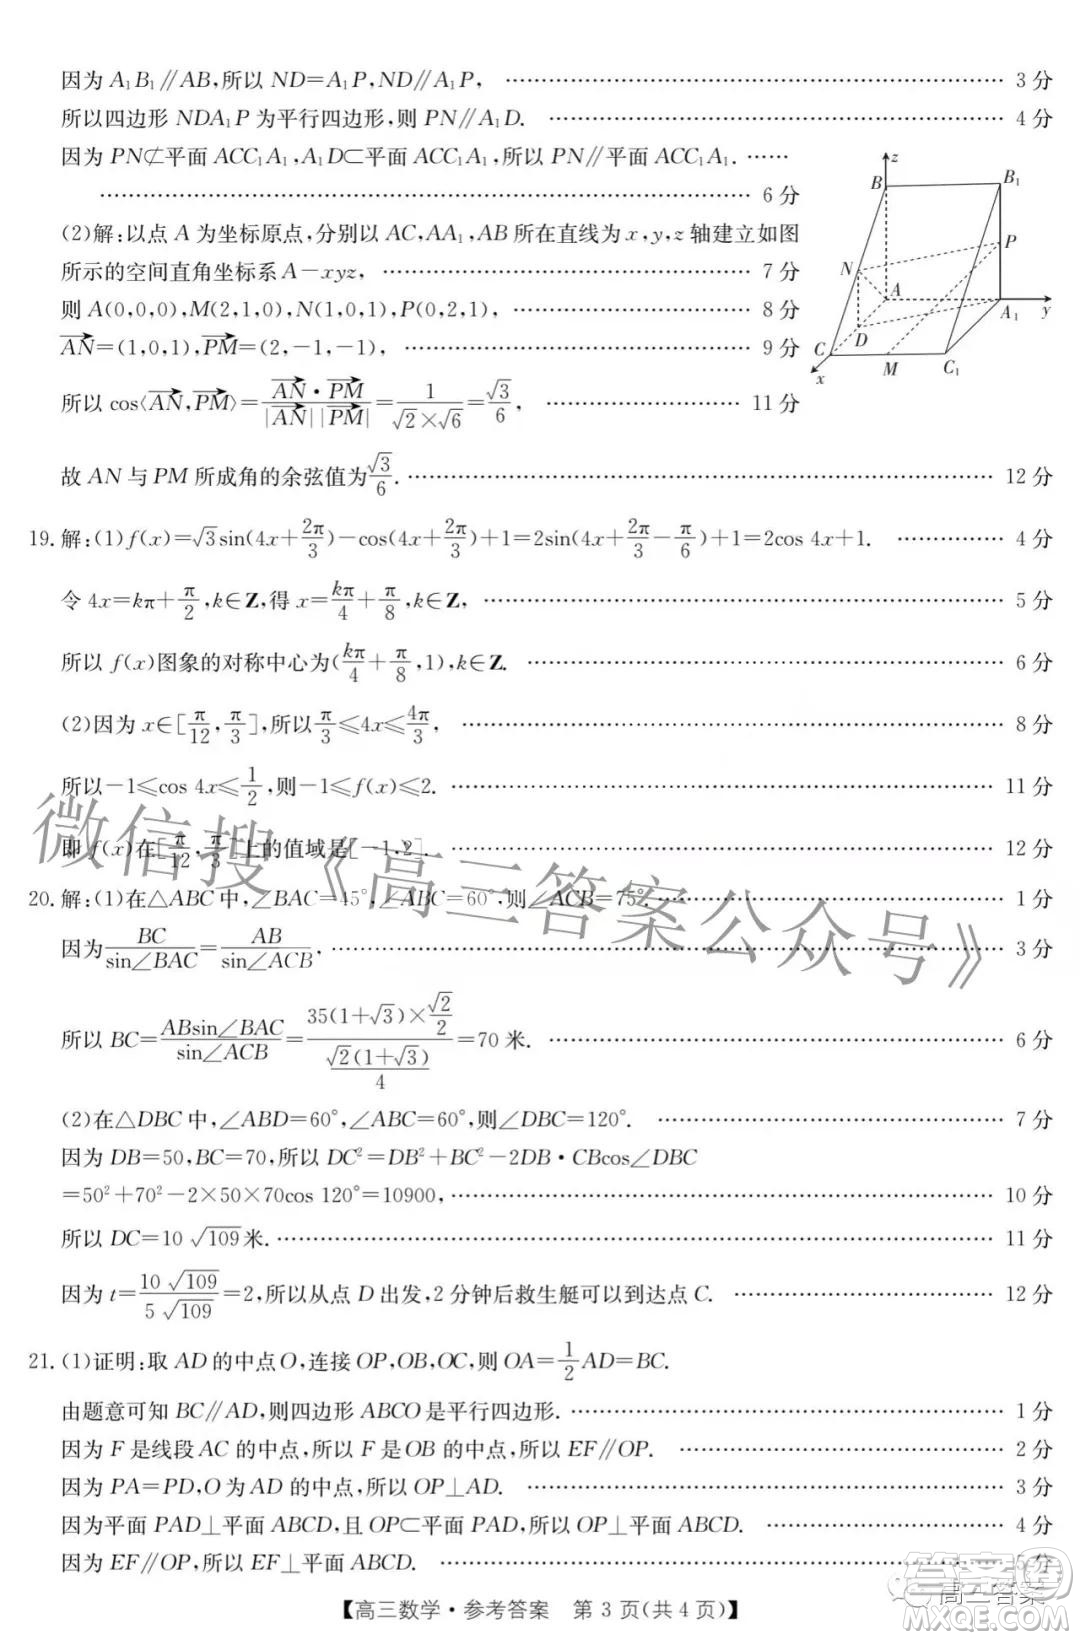 因为 A₁B₁∥AB,所以 ND=A₁P,ND∥A₁P, …… 3 分
所以四边形 NDA₁P 为平行四边形,则 PN∥A₁D. …… 4 分
因为 PN⊄平面 ACC₁A₁,A₁D⊂平面 ACC₁A₁,所以 PN∥平面 ACC₁A₁. ……
…… 6 分
(2)解:以点 A 为坐标原点,分别以 AC,AA₁,AB 所在直线为 x,y,z 轴建立如图
所示的空间直角坐标系 A-xyz, …… 7 分
则 A(0,0,0),M(2,1,0),N(1,0,1),P(0,2,1), …… 8 分
\overrightarrow{AN}=(1,0,1),\overrightarrow{PM}=(2,-1,-1), …… 9 分
所以 cos⟨\overrightarrow{AN},\overrightarrow{PM}⟩=\frac{\overrightarrow{AN}·\overrightarrow{PM}}{|\overrightarrow{AN}||\overrightarrow{PM}|}=\frac{1}{√2×√6}=\frac{√3}{6}, …… 11 分
故 AN 与 PM 所成角的余弦值为\frac{√3}{6}. …… 12 分
z
B
B₁
P
N
A
A₁
y
D
C
M
C₁
x
19. 解:(1)f(x)=√3sin(4x+\frac{2π}{3})-cos(4x+\frac{2π}{3})+1=2sin(4x+\frac{2π}{3}-\frac{π}{6})+1=2cos 4x+1. …… 4 分
令 4x=kπ+\frac{π}{2},k∈Z,得 x=\frac{kπ}{4}+\frac{π}{8},k∈Z, …… 5 分
所以 f(x)图象的对称中心为(\frac{kπ}{4}+\frac{π}{8},1),k∈Z. …… 6 分
(2)因为 x∈[\frac{π}{12},\frac{π}{3}],所以\frac{π}{3}≤4x≤\frac{4π}{3}, …… 8 分
所以-1≤cos 4x≤\frac{1}{2},则-1≤f(x)≤2. …… 11 分
即 f(x)在[\frac{π}{12},\frac{π}{3}]上的值域是[-1,2]. …… 12 分
20. 解:(1)在△ABC 中,∠BAC=45°,∠ABC=60°,则∠ACB=75°. …… 1 分
因为\frac{BC}{sin∠BAC}=\frac{AB}{sin∠ACB}, …… 3 分
所以 BC=\frac{ABsin∠BAC}{sin∠ACB}=\frac{35(1+√3)×\frac{√2}{2}}{\frac{√2(1+√3)}{4}}=70 米. …… 6 分
(2)在△DBC 中,∠ABD=60°,∠ABC=60°,则∠DBC=120°. …… 7 分
因为 DB=50,BC=70,所以 DC²=DB²+BC²-2DB·CBcos∠DBC
=50²+70²-2×50×70cos 120°=10900, …… 10 分
所以 DC=10√109米. …… 11 分
因为 t=\frac{10√109}{5√109}=2,所以从点 D 出发,2 分钟后救生艇可以到达点 C. …… 12 分
21. (1)证明:取 AD 的中点 O,连接 OP,OB,OC,则 OA=\frac{1}{2}AD=BC.
由题意可知 BC∥AD,则四边形 ABCO 是平行四边形. …… 1 分
因为 F 是线段 AC 的中点,所以 F 是 OB 的中点,所以 EF∥OP. …… 2 分
因为 PA=PD,O 为 AD 的中点,所以 OP⊥AD. …… 3 分
因为平面 PAD⊥平面 ABCD,且 OP⊂平面 PAD,所以 OP⊥平面 ABCD. …… 4 分
因为 EF∥OP,所以 EF⊥平面 ABCD. …… 5 分
【高三数学·参考答案 第 3 页(共 4 页)】
微信搜《高三答案公众号》
高三答案
答案圈
MXQE.COM